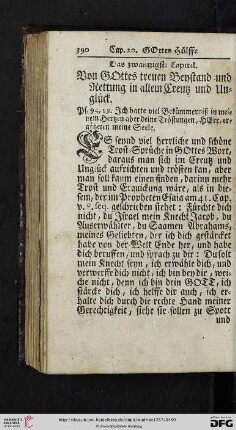 390 Cap. 20. GOttes Hülffe
Das zwantzigste Capitel.
Von GOttes treuen Beystand und
Rettung in allem Creutz und Un-
glück.
Ps. 94, 19. Ich hatte viel Bekümmerniß in mei-
nem Hertzen aber deine Tröstungen, HErr, er-
getzeten meine Seele.
ES seynd viel herrliche und schöne
Trost-Sprüche in GOttes Wort,
daraus man sich im Creutz und
Unglück aufrichten und trösten kan, aber
man soll kaum einen finden, darinn mehr
Trost und Erquickung wäre, als in die-
sem, der im Propheten Esaia am 41. Cap.
v. 8. seq. geschrieben stehet: Fürchte dich
nicht, du Israel mein Knecht Jacob, du
Auserwählter, du Saamen Abrahams,
meines Geliebten, der ich dich gestärcket
habe von der Welt Ende her, und habe
dich beruffen, und sprach zu dir: Du solt
mein Knecht seyn, ich erwähle dich, und
verwerffe dich nicht, ich bin bey dir, wei-
che nicht, denn ich bin dein GOTT, ich
stärcke dich, ich helffe dir auch, ich er-
halte dich durch die rechte Hand meiner
Gerechtigkeit, siehe sie sollen zu Spott
und
UNIVERSITÄTS-
BIBLIOTHEK
HEIDELBERG
DFG